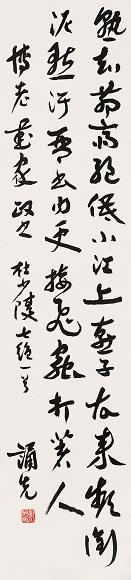 孰知茅齋絕低小江上燕子故來頻銜
泥點汙琴書內更接飛蟲打著人
博老畫家政之 杜少陵七絕一首 誦先